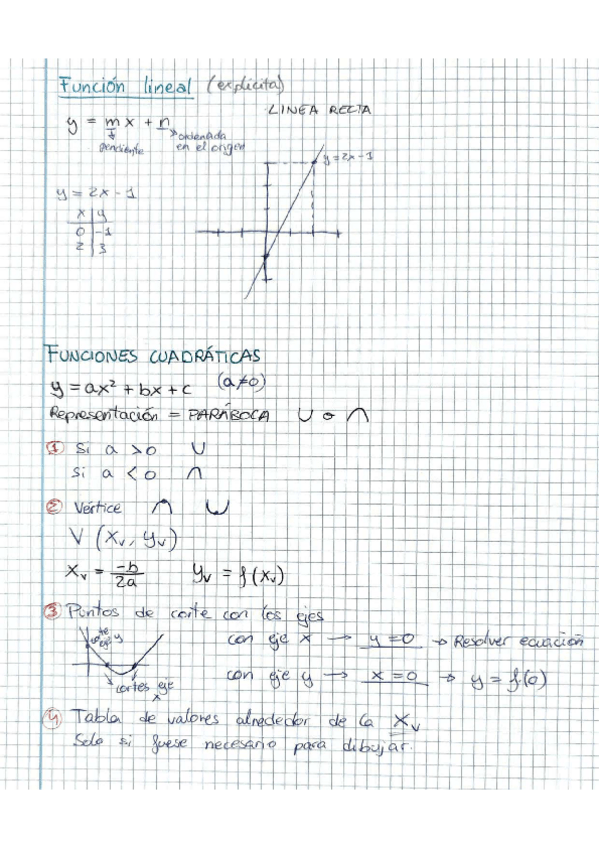 Función lineal (explícita)
LINEA RECTA
y = mx + n
pendiente
ordenada
en el origen
y = 2x - 1
y = 2x - 1
x | y
0 | -1
2 | 3
FUNCIONES CUADRÁTICAS
y = ax² + bx + c (a ≠ 0)
Representación = PARÁBOLA ∪ o ∩
① Si a > 0 ∪
Si a < 0 ∩
② Vértice ∩ ∪
V (xᵥ, yᵥ)
xᵥ = -b/2a yᵥ = f(xᵥ)
③ Puntos de corte con los ejes
corte eje y
cortes eje x
con eje x → y = 0 → Resolver ecuación
con eje y → x = 0 → y = f(0)
④ Tabla de valores alrededor de la xᵥ
Solo si fuese necesario para dibujar.